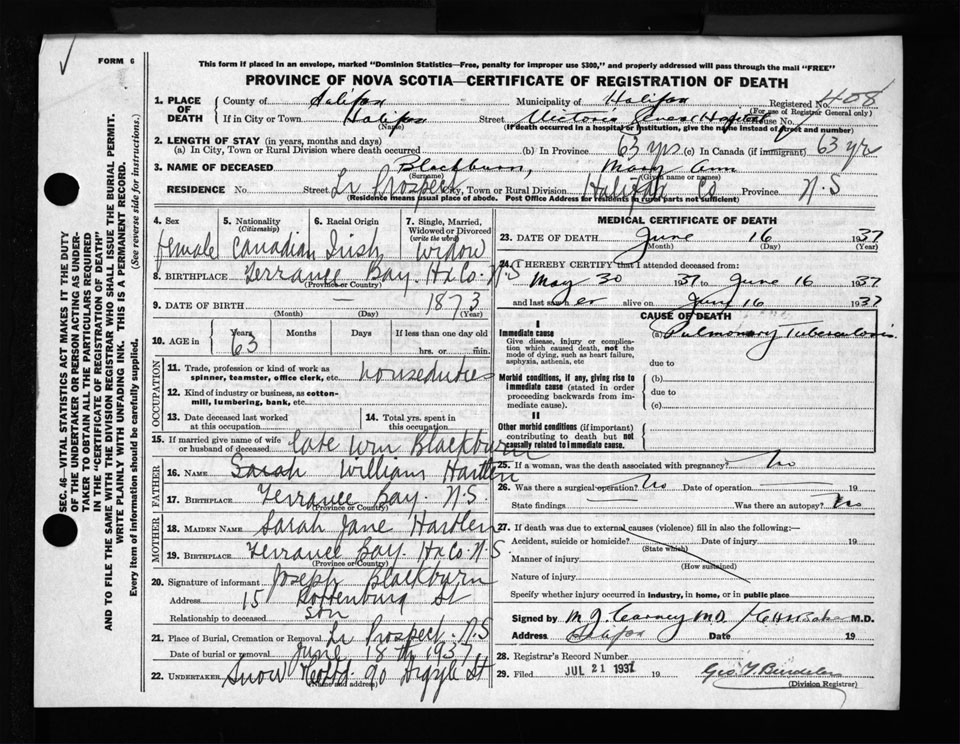 FORM 6
This form if placed in an envelope, marked "Dominion Statistics—Free, penalty for improper use $300," and properly addressed will pass through the mail "FREE"
PROVINCE OF NOVA SCOTIA—CERTIFICATE OF REGISTRATION OF DEATH
SEC. 46—VITAL STATISTICS ACT MAKES IT THE DUTY
OF THE UNDERTAKER OR PERSON ACTING AS UNDER-
TAKER TO OBTAIN ALL THE PARTICULARS REQUIRED
IN THE "CERTIFICATE OF REGISTRATION OF DEATH"
AND TO FILE THE SAME WITH THE DIVISION REGISTRAR WHO SHALL ISSUE THE BURIAL PERMIT.
WRITE PLAINLY WITH UNFADING INK. THIS IS A PERMANENT RECORD.
Every item of information should be carefully supplied. (See reverse side for instructions.)
1. PLACE OF DEATH County of Halifax Municipality of Halifax Registered No. 408
(For use of Registrar General only)
If in City or Town Halifax Street Victoria General Hospital House No.
(Name) (If death occurred in a hospital or institution, give the name instead of street and number)
2. LENGTH OF STAY (in years, months and days)
(a) In City, Town or Rural Division where death occurred (b) In Province 63 yrs (c) In Canada (if immigrant) 63 yr
3. NAME OF DECEASED Blackburn, Mary Ann
(Surname) (Given name or names)
RESIDENCE No. Street Lr Prospect City, Town or Rural Division Halifax Co Province N.S
(Residence means usual place of abode. Post Office Address for residents in rural parts not sufficient)
4. Sex female
5. Nationality (Citizenship) Canadian
6. Racial Origin Irish
7. Single, Married, Widowed or Divorced (write the word) widow
8. BIRTHPLACE Terrance Bay. Hx Co. N S
(Province or Country)
9. DATE OF BIRTH — 1873
(Month) (Day) (Year)
10. AGE in Years 63 Months Days If less than one day old hrs. or min.
OCCUPATION
11. Trade, profession or kind of work as spinner, teamster, office clerk, etc. houseduties
12. Kind of industry or business, as cotton-mill, lumbering, bank, etc.
13. Date deceased last worked at this occupation
14. Total yrs. spent in this occupation
15. If married give name of wife or husband of deceased Late Wm Blackburn
FATHER
16. NAME Sarah William Hartlen
17. BIRTHPLACE Terrance Bay. N.S.
(Province or Country)
MOTHER
18. MAIDEN NAME Sarah Jane Hartlen
19. BIRTHPLACE Terrance Bay. Hx Co. N.S.
(Province or Country)
20. Signature of informant Joseph Blackburn
Address 15 Rottenburg St
Relationship to deceased son
21. Place of Burial, Cremation or Removal Lr Prospect. N.S
Date of burial or removal June 18th 1937
22. UNDERTAKER Snow 90 Argyle St
(Name and address)
MEDICAL CERTIFICATE OF DEATH
23. DATE OF DEATH June 16 1937
(Month) (Day) (Year)
24. I HEREBY CERTIFY that I attended deceased from:
May 30 1937 to June 16 1937
and last saw her alive on June 16 1937
CAUSE OF DEATH
I
Immediate cause
Give disease, injury or complication which caused death, not the mode of dying, such as heart failure, asphyxia, asthenia, etc
(a) Pulmonary Tuberculosis
due to
Morbid conditions, if any, giving rise to immediate cause (stated in order proceeding backwards from immediate cause).
(b)
due to
(c)
II
Other morbid conditions (if important) contributing to death but not causally related to immediate cause.
25. If a woman, was the death associated with pregnancy? No
26. Was there a surgical operation? No Date of operation — 19
State findings — Was there an autopsy? No
27. If death was due to external causes (violence) fill in also the following:—
Accident, suicide or homicide? Date of injury 19
(State which)
Manner of injury
(How sustained)
Nature of injury
Specify whether injury occurred in industry, in home, or in public place
Signed by M. J. Carney M.D. M.D.
Address Halifax Date 19
28. Registrar's Record Number
29. Filed JUL 21 1937 19
(Division Registrar)